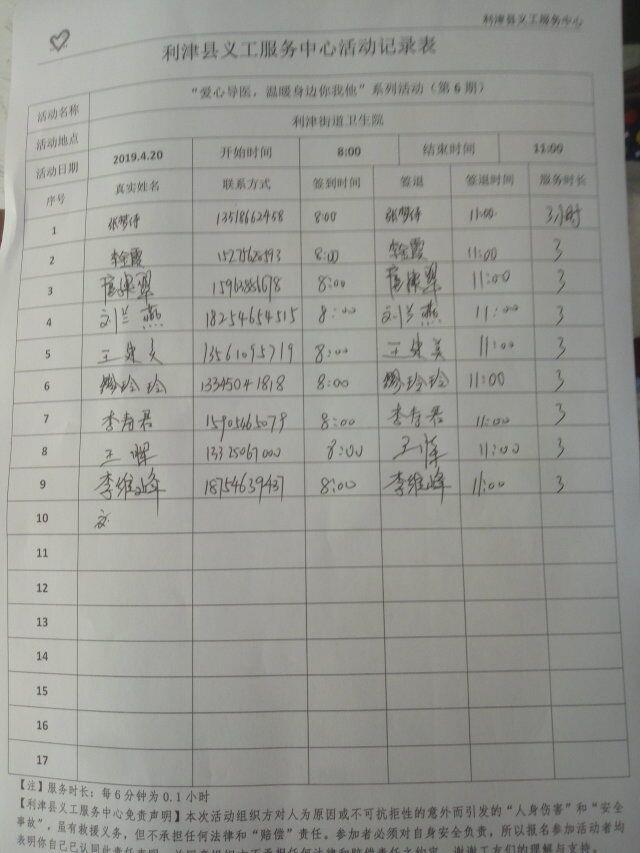 利津县义工服务中心
利津县义工服务中心活动记录表
活动名称 “爱心导医，温暖身边你我他”系列活动（第6期）
活动地点 利津街道卫生院
活动日期 2019.4.20 开始时间 8:00 结束时间 11:00
序号 真实姓名 联系方式 签到时间 签退 签退时间 服务时长
1 张梦伟 13518662458 8:00 张梦伟 11:00 3小时
2 李金霞 15275620593 8:00 李金霞 11:00 3
3 8:00 11:00 3
4 刘兰燕 18254654515 8:00 刘兰燕 11:00 3
5 王 13561095719 8:00 王 11:00 3
6 玲玲 13345041818 8:00 玲玲 11:00 3
7 李寿君 15905465079 8:00 李寿君 11:00 3
8 王晖 13325067000 8:00 王晖 11:00 3
9 李维峰 18754639437 8:00 李维峰 11:00 3
10
11
12
13
14
15
16
17
【注】服务时长：每6分钟为0.1小时
【利津县义工服务中心免责声明】本次活动组织方对人为原因或不可抗拒性的意外而引发的“人身伤害”和“安全
事故”，虽有救援义务，但不承担任何法律和“赔偿”责任。参加者必须对自身安全负责，所以报名参加活动者均
表明你自己已认同此责任声明